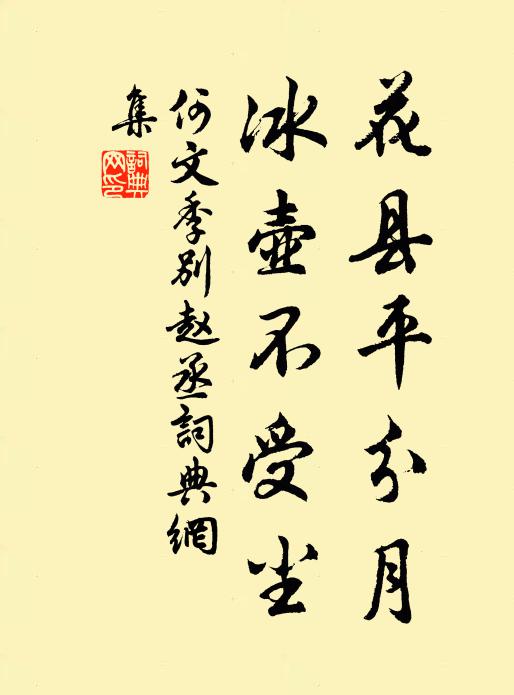 花县平分月
冰壶不受尘
何文季别赵丞詞典網
集
詞典
网印